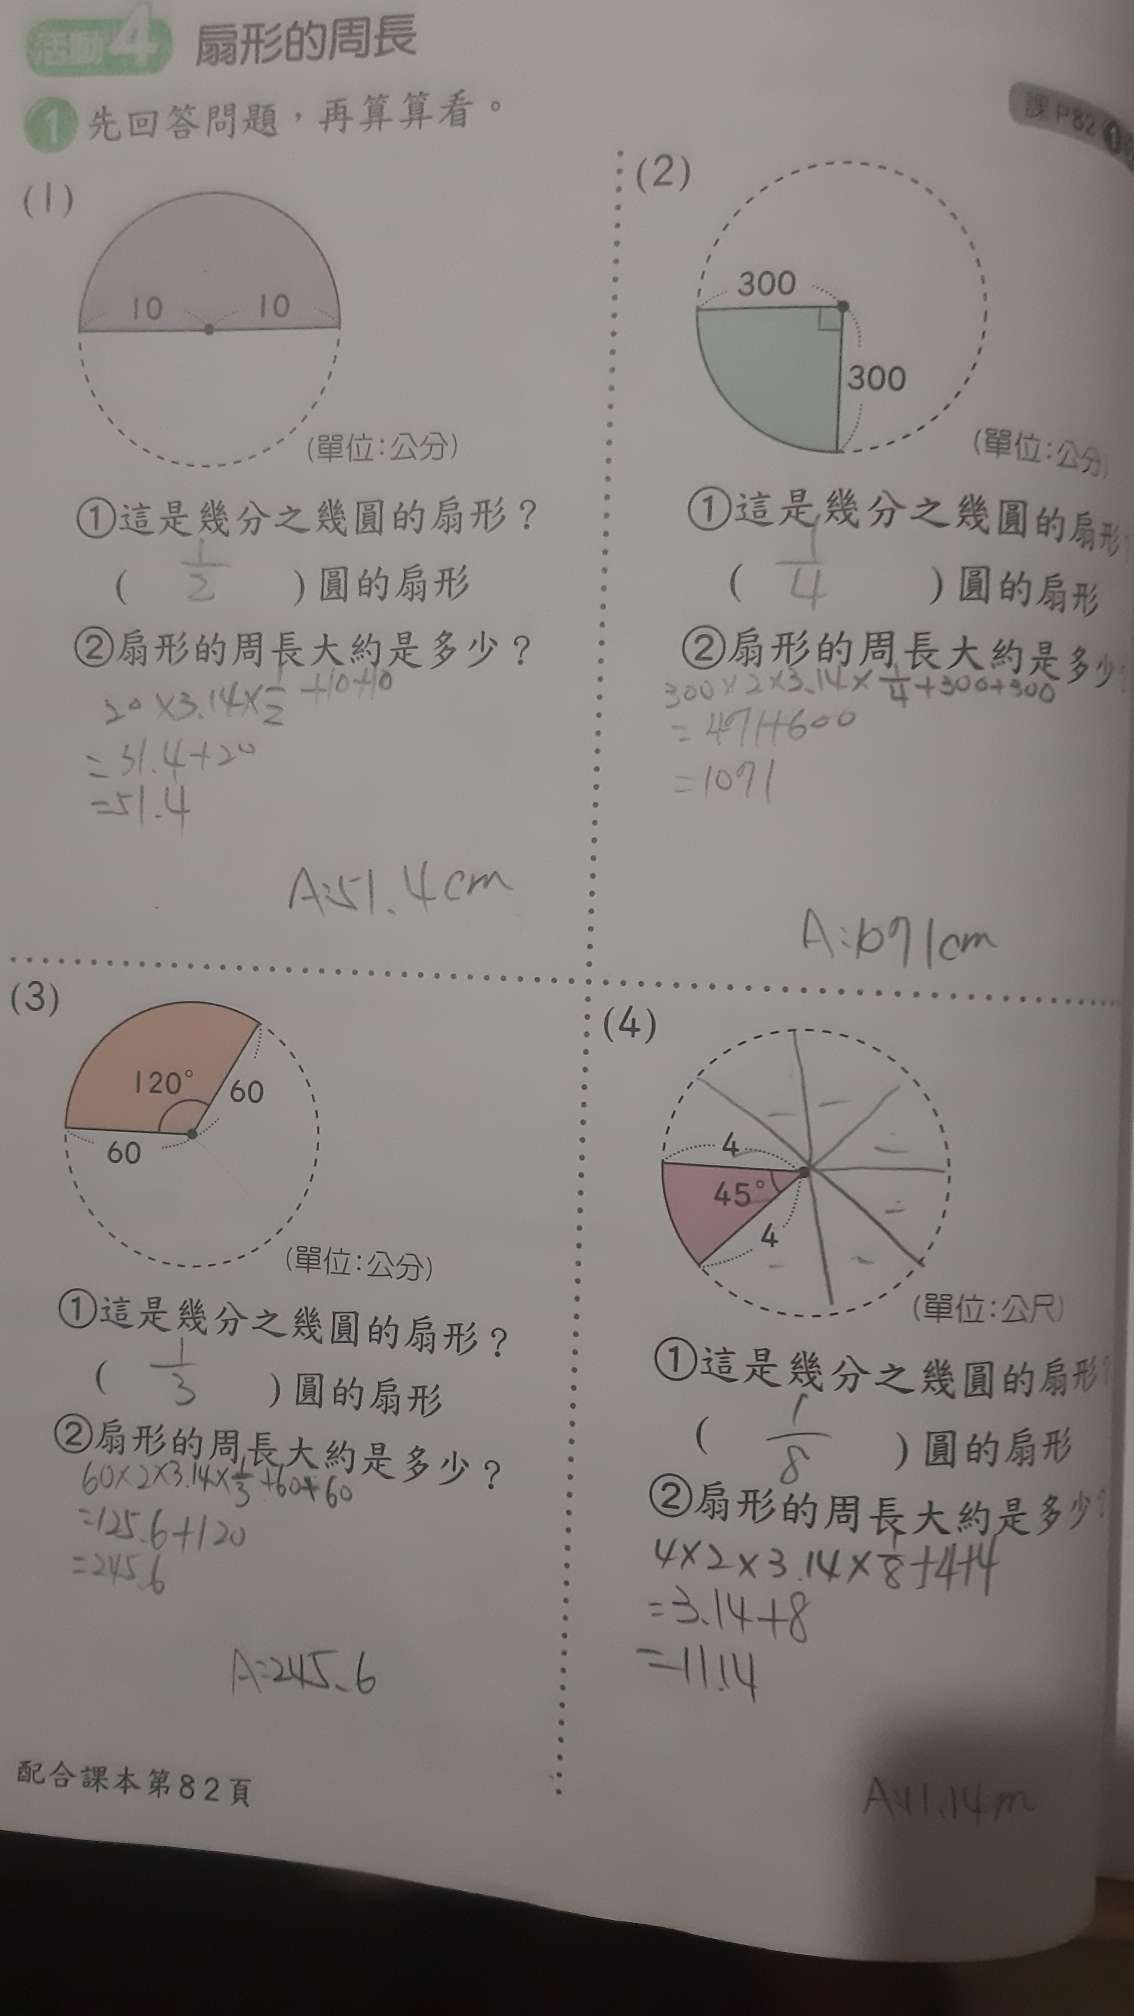 活動4 扇形的周長
課P82 1
1 先回答問題，再算算看。
(1)
10 10
(單位：公分)
①這是幾分之幾圓的扇形？
( 1/2 )圓的扇形
②扇形的周長大約是多少？
20×3.14×1/2+10+10
=31.4+20
=51.4
A:51.4cm
(2)
300
300
(單位：公分)
①這是幾分之幾圓的扇形?
( 1/4 )圓的扇形
②扇形的周長大約是多少?
300×2×3.14×1/4+300+300
=471+600
=1071
A:1071cm
(3)
120°
60
60
(單位：公分)
①這是幾分之幾圓的扇形？
( 1/3 )圓的扇形
②扇形的周長大約是多少？
60×2×3.14×1/3+60+60
=125.6+120
=245.6
A:245.6
(4)
4
45°
4
(單位：公尺)
①這是幾分之幾圓的扇形?
( 1/8 )圓的扇形
②扇形的周長大約是多少?
4×2×3.14×1/8+4+4
=3.14+8
=11.14
A:11.14m
配合課本第82頁